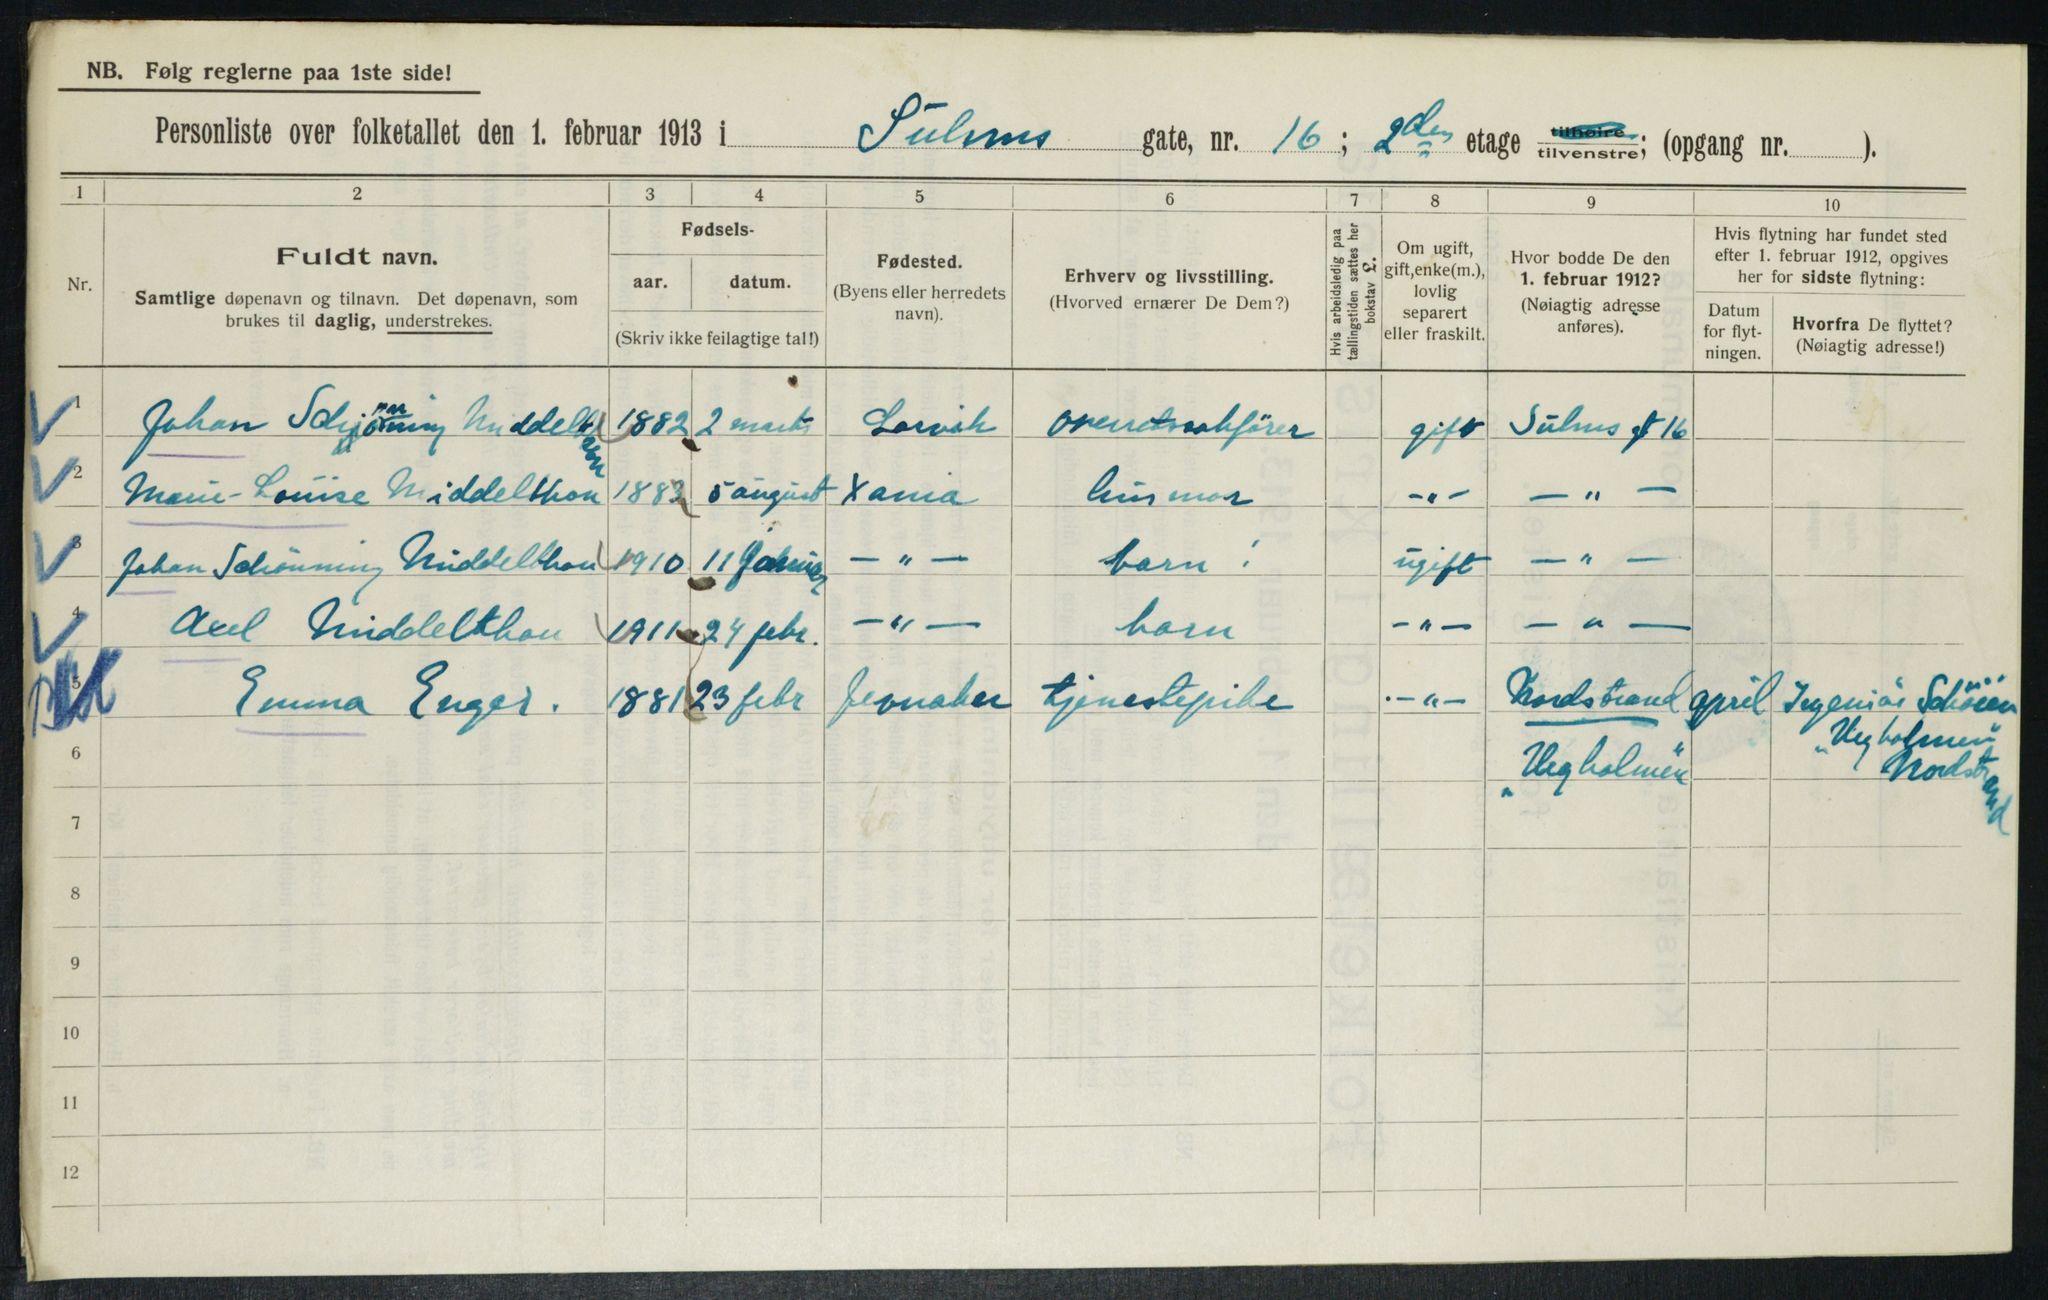 NB. Følg reglerne paa 1ste side!
Personliste over folketallet den 1. februar 1913 i Suhms gate, nr. 16; 2den etage tilhøire tilvenstre; (opgang nr. ).
1 2 3 4 5 6 7 8 9 10
Nr.
Fuldt navn.
Samtlige døpenavn og tilnavn. Det døpenavn, som
brukes til daglig, understrekes.
Fødsels-
aar. datum.
(Skriv ikke feilagtige tal!)
Fødested.
(Byens eller herredets
navn).
Erhverv og livsstilling.
(Hvorved ernærer De Dem?)
Hvis arbeidsledig paa
tællingstiden sættes her
bokstav £.
Om ugift,
gift, enke(m.),
lovlig
separert
eller fraskilt.
Hvor bodde De den
1. februar 1912?
(Nøiagtig adresse
anføres).
Hvis flytning har fundet sted
efter 1. februar 1912, opgives
her for sidste flytning:
Datum
for flyt-
ningen.
Hvorfra De flyttet?
(Nøiagtig adresse!)
1 Johan Middelthon 1882 2 marts Larvik overretssakfører gift Suhms gt 16
2 Marie-Louise Middelthon 1883 5 august Xania husmor -"- -"-
3 Johan Schönning Middelthon 1910 11 Januar -"- barn ugift -"-
4 Axel Middelthon 1911 24 febr. -"- barn -"- -"-
5 Emma Enger. 1881 23 febr Jevnaker tjenestepike -"- Nordstrand april Ingeniör
6 "Ulvøholmen" Nordstrand
7
8
9
10
11
12